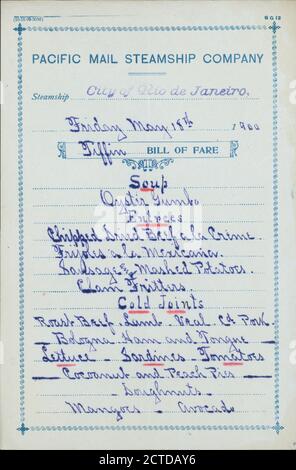 PACIFIC MAIL STEAMSHIP COMPANY
Steamship City of Rio de Janeiro,
Friday May 18th 1900
Tiffin BILL OF FARE
Soup
Oyster Gumbo
Entrees
Chipped Dried Beef a la Crême.
Tripes a la Mexicana.
Sausage & Mashed Potatoes.
Clam Fritters.
Cold Joints
Roast Beef Lamb Veal Cd Pork.
Bologna Ham and Tongue
Lettuce - Sardines - Tomatoes
Cocoanut and Peach Pies
Doughnuts
Mangoes - Avocado
alamy
Image ID: 2CTDAY6
www.alamy.com